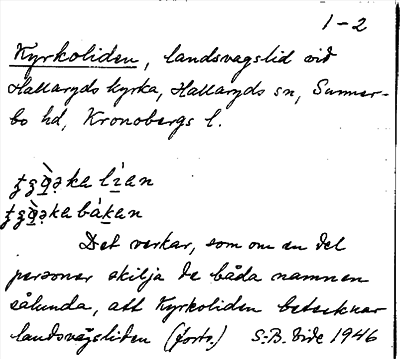 1-2
Kyrkoliden, landsvägslid vid
Hallaryds kyrka, Hallaryds sn, Sunner-
bo hd, Kronobergs l.
ka lìan
ka bákan
Det verkar, som om en del
personer skilja de båda namnen
sålunda, att Kyrkoliden betecknar
landsvägsliden (forts.) S.-B. Vide 1946